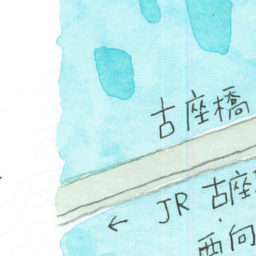 古座橋
← JR 古座
西向